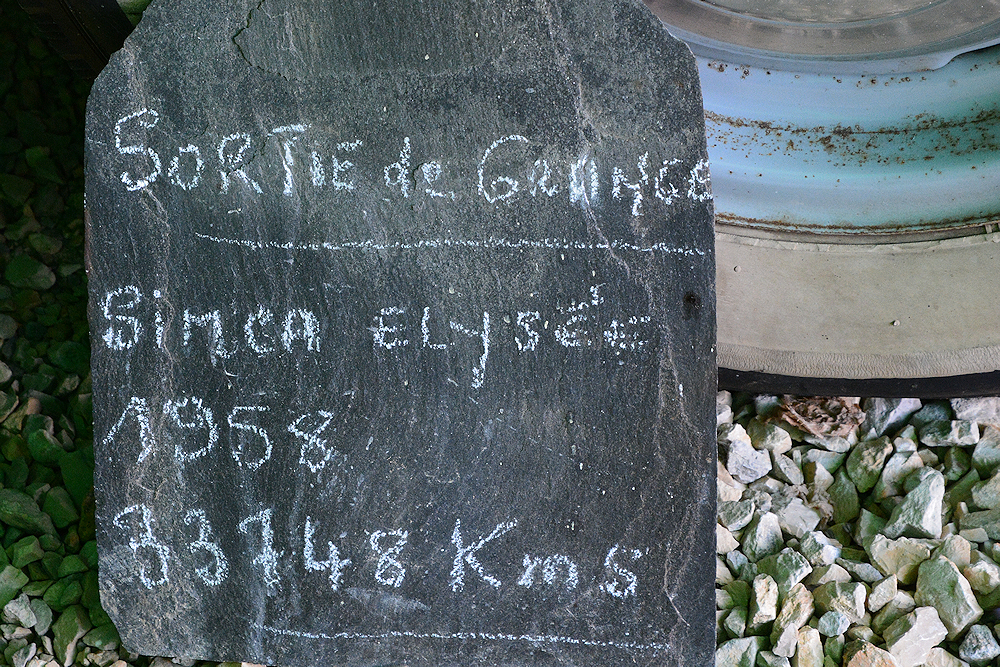 SORTIE de GRANGE
Simca ELYSÉE
1958
33748 Kms